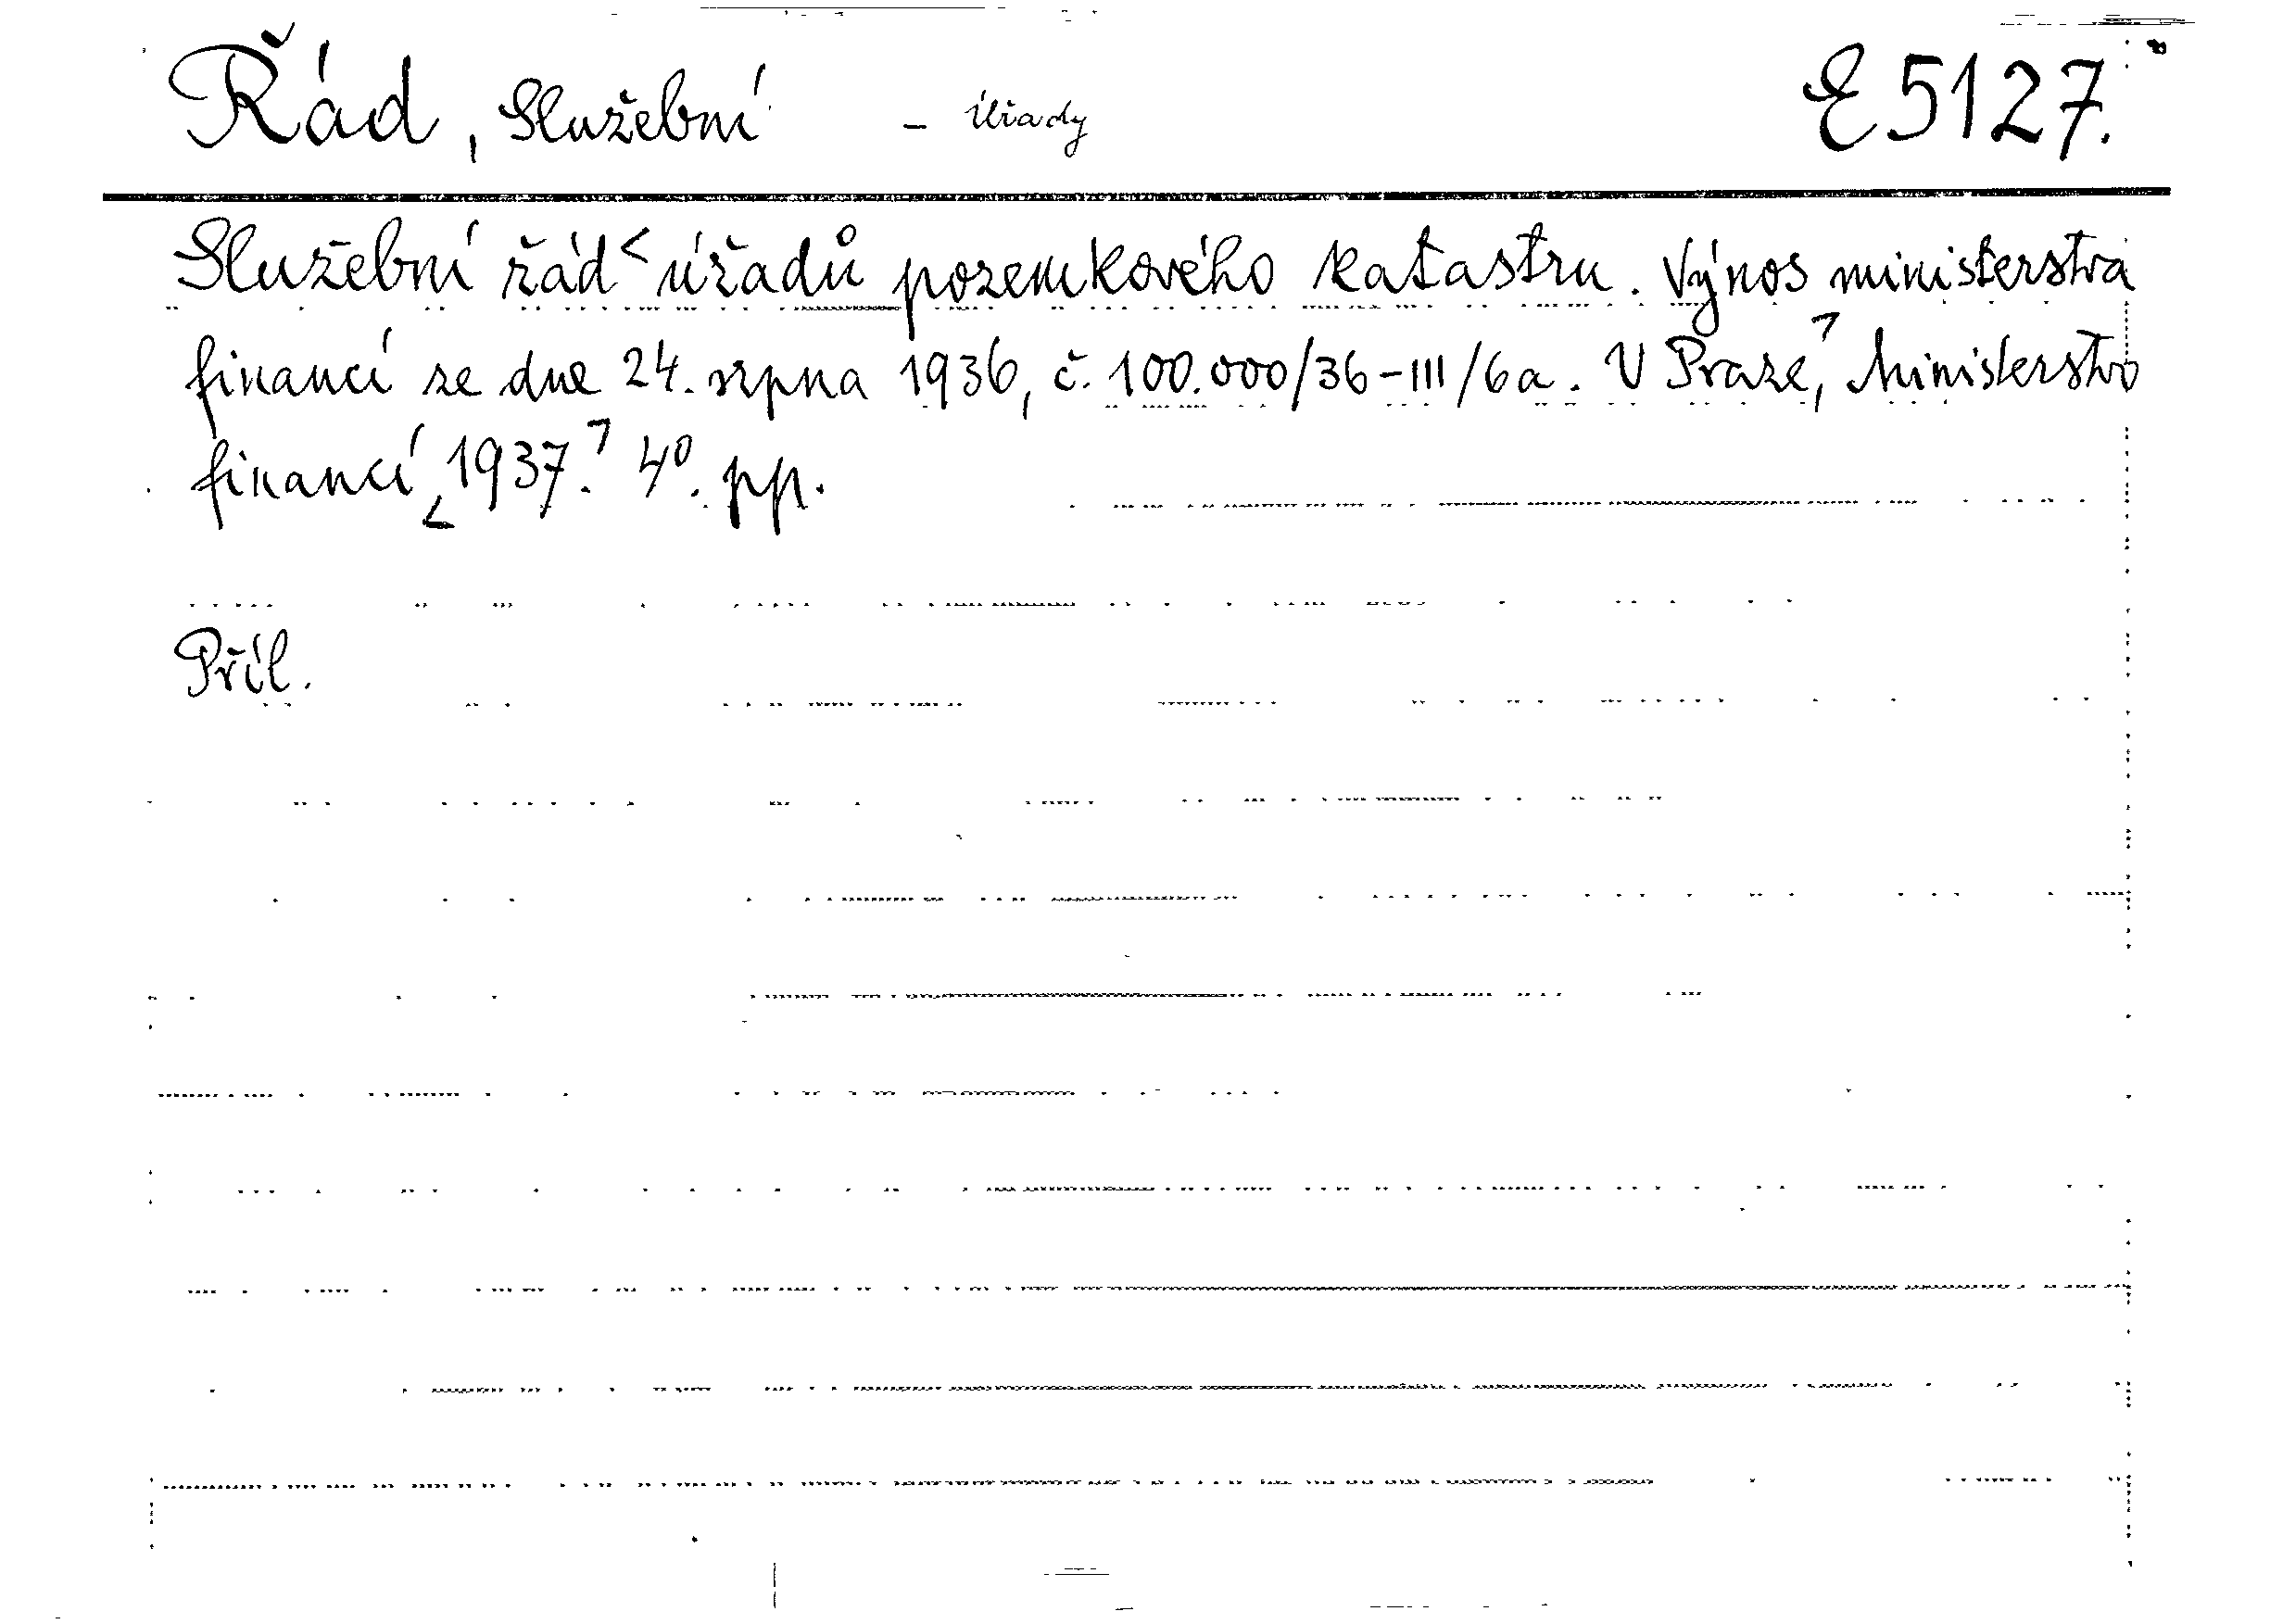 Řád, Služební - úřady E 5127.
Služební řád < úřadů pozemkového katastru. Výnos ministerstva
financí ze dne 24. srpna 1936, č. 100.000/36-III/6a. V Praze, ⌝ Ministerstvo
financí ⌞ 1937. ⌝ 4°. pp.
Příl.